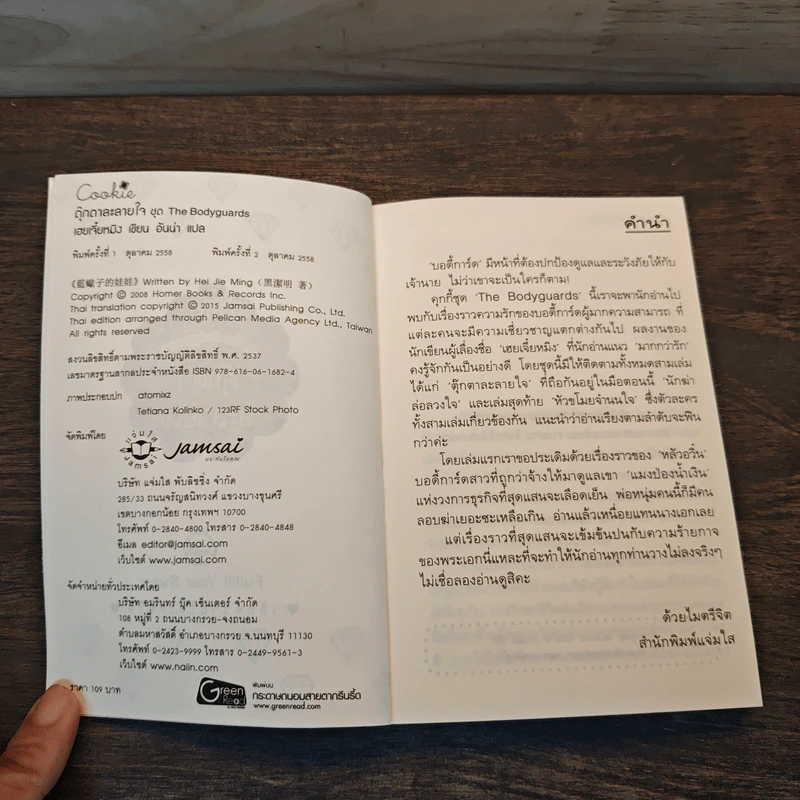 Cookie
ตุ๊กตาละลายใจ ชุด The Bodyguards
เฮยเจี๋ยหมิง เขียน อันน่า แปล
พิมพ์ครั้งที่ 1 ตุลาคม 2558 พิมพ์ครั้งที่ 2 ตุลาคม 2558
《藍蠍子的娃娃》Written by Hei Jie Ming (黑潔明 著)
Copyright © 2008 Homer Books & Records Inc.
Thai translation copyright © 2015 Jamsai Publishing Co., Ltd.
Thai edition arranged through Pelican Media Agency Ltd., Taiwan
All rights reserved
สงวนลิขสิทธิ์ตามพระราชบัญญัติลิขสิทธิ์ พ.ศ. 2537
เลขมาตรฐานสากลประจำหนังสือ ISBN 978-616-06-1682-4
ภาพประกอบปก atomixz
Tetiana Kolinko / 123RF Stock Photo
จัดพิมพ์โดย
แจ่มใส
jamsai
jamsai
บริษัท แจ่มใส พับลิชชิ่ง จำกัด
285/33 ถนนจรัญสนิทวงศ์ แขวงบางขุนศรี
เขตบางกอกน้อย กรุงเทพฯ 10700
โทรศัพท์ 0-2840-4800 โทรสาร 0-2840-4848
อีเมล editor@jamsai.com
เว็บไซต์ www.jamsai.com
จัดจำหน่ายทั่วประเทศโดย
บริษัท อมรินทร์ บุ๊ค เซ็นเตอร์ จำกัด
108 หมู่ที่ 2 ถนนบางกรวย-จงถนอม
ตำบลมหาสวัสดิ์ อำเภอบางกรวย จ.นนทบุรี 11130
โทรศัพท์ 0-2423-9999 โทรสาร 0-2449-9561-3
เว็บไซต์ www.naiin.com
ราคา 109 บาท
Green Read
พิมพ์บน
กระดาษถนอมสายตากรีนรี้ด
www.greenread.com
คำนำ
'บอดี้การ์ด' มีหน้าที่ต้องปกป้องดูแลและระวังภัยให้กับ
เจ้านาย ไม่ว่าเขาจะเป็นใครก็ตาม!
คุกกี้ชุด 'The Bodyguards' นี้เราจะพานักอ่านไป
พบกับเรื่องราวความรักของบอดี้การ์ดผู้มากความสามารถ ที่
แต่ละคนจะมีความเชี่ยวชาญแตกต่างกันไป ผลงานของ
นักเขียนผู้เลื่องชื่อ 'เฮยเจี๋ยหมิง' ที่นักอ่านแนว 'มากกว่ารัก'
คงรู้จักกันเป็นอย่างดี โดยชุดนี้มีให้ติดตามทั้งหมดสามเล่ม
ได้แก่ 'ตุ๊กตาละลายใจ' ที่ถือกันอยู่ในมือตอนนี้ 'นักฆ่า
ล่อลวงใจ' และเล่มสุดท้าย 'หัวขโมยจำนนใจ' ซึ่งตัวละคร
ทั้งสามเล่มเกี่ยวข้องกัน แนะนำว่าอ่านเรียงตามลำดับจะฟิน
กว่าค่ะ
โดยเล่มแรกเราขอประเดิมด้วยเรื่องราวของ 'หลัวอวิ๋น'
บอดี้การ์ดสาวที่ถูกว่าจ้างให้มาดูแลเขา 'แมงป่องน้ำเงิน'
แห่งวงการธุรกิจที่สุดแสนจะเลือดเย็น พ่อหนุ่มคนนี้ก็มีคน
ลอบฆ่าเยอะซะเหลือเกิน อ่านแล้วเหนื่อยแทนนางเอกเลย
แต่เรื่องราวที่สุดแสนจะเข้มข้นปนกับความร้ายกาจ
ของพระเอกนี่แหละที่จะทำให้นักอ่านทุกท่านวางไม่ลงจริงๆ
ไม่เชื่อลองอ่านดูสิคะ
ด้วยไมตรีจิต
สำนักพิมพ์แจ่มใส